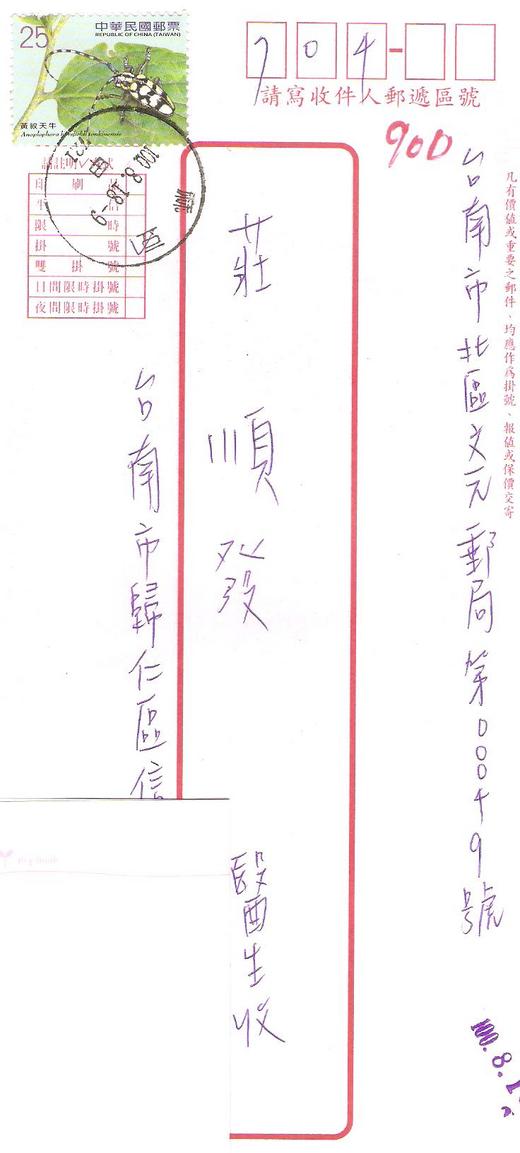 25
中華民國郵票
REPUBLIC OF CHINA (TAIWAN)
黃紋天牛
704-
請寫收件人郵遞區號
900
凡有價値或重要之郵件、均應作爲掛號、報値或保價交寄
台南市北區文元郵局第00049號
莊順發醫生收
台南市歸仁區信
印刷
平信
限時
掛號
雙掛號
日間限時掛號
夜間限時掛號
100.8.18
100.8.1